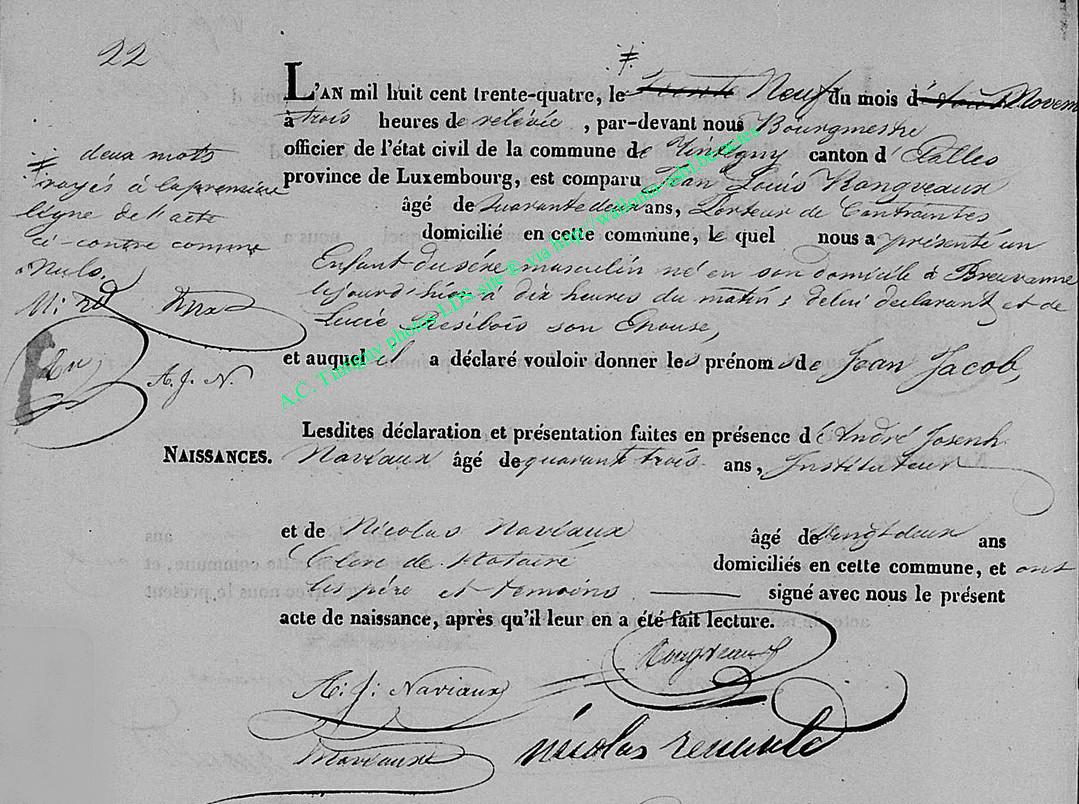 22
L'AN mil huit cent trente-quatre, le trente Neuf du mois d' Novem
à trois heures de relevée , par-devant nous Bourgmestre
officier de l'état civil de la commune de Tintigny canton d' Etalles
province de Luxembourg, est comparu Jean Louis Rongveaux
âgé de quarante deux ans, Porteur de Contraintes
domicilié en cette commune, le quel nous a présenté un
Enfant du séxe masculin né en son domicile à Breuvanne
aujourd'hui à dix heures du matin; de lui déclarant et de
Lucie Resibois son Epouse,
et auquel il a déclaré vouloir donner les prénoms de Jean Jacob,
Lesdites déclaration et présentation faites en présence d' André Joseph
NAISSANCES. Naviaux âgé de quarant trois ans, Instituteur
et de Nicolas Naviaux âgé de vingt deux ans
Clerc de Notaire domiciliés en cette commune, et ont
les père et temoins signé avec nous le présent
acte de naissance, après qu'il leur en a été fait lecture.
≠ deux mots
rayés à la première
ligne de l'acte
ci-contre comme
nuls.
N. Rd
A. J. N.
Rongveaux
A. J. Naviaux
Naviaux
nicolas renauld
A.C. Tintigny photos LDS site © via http://wallonia-asbl.be/actes